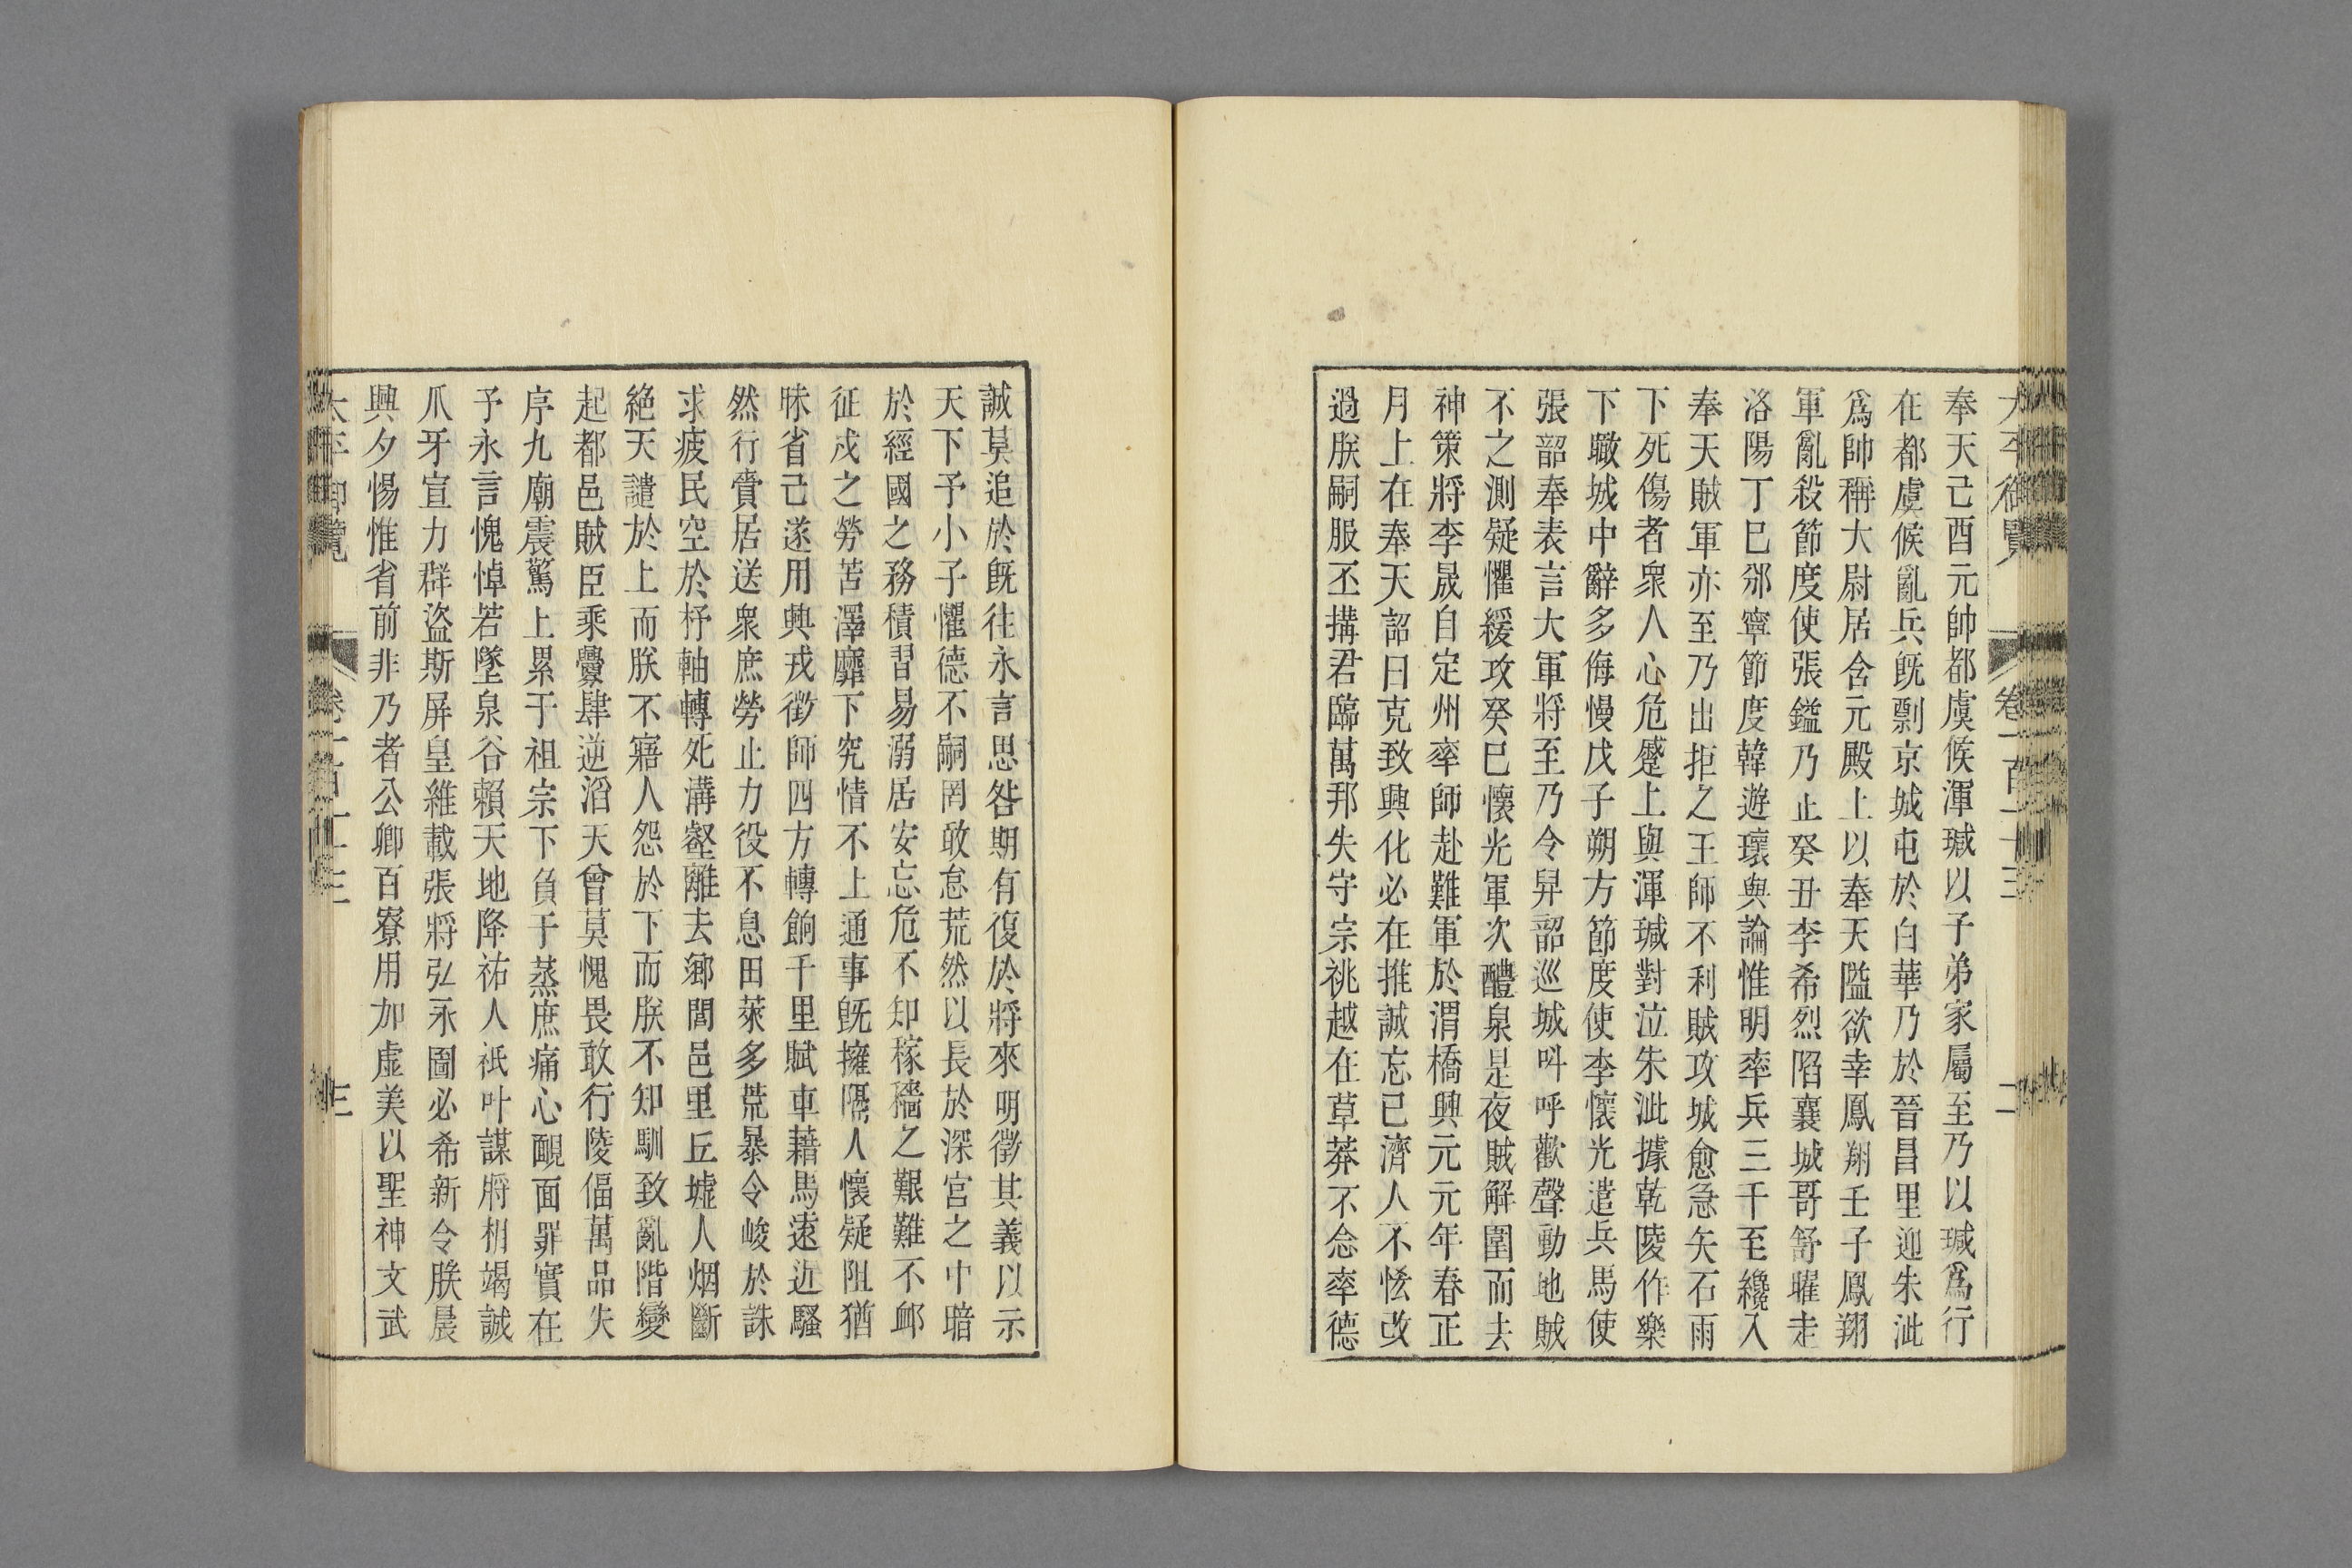 太平御覽 卷一百一十三 二
奉天己酉元帥都虞候渾瑊以子弟家屬至乃以瑊爲行
在都虞候亂兵旣剽京城屯於白華乃於晉昌里迎朱泚
爲帥稱大尉居含元殿上以奉天隘欲幸鳳翔壬子鳳翔
軍亂殺節度使張鎰乃止癸丑李希烈陷襄城哥舒曜走
洛陽丁巳邠寧節度韓遊瓌與論惟明率兵三千至纔入
奉天賊軍亦至乃出拒之王師不利賊攻城愈急矢石雨
下死傷者衆人心危蹙上與渾瑊對泣朱泚據乾陵作樂
下瞰城中辭多侮慢戊子朔方節度使李懷光遣兵馬使
張韶奉表言大軍將至乃令舁韶巡城叫呼歡聲動地賊
不之測疑懼緩攻癸巳懷光軍次醴泉是夜賊解圍而去
神策將李晟自定州率師赴難軍於渭橋興元元年春正
月上在奉天詔曰克致興化必在推誠忘已濟人不悋改
過朕嗣服丕搆君臨萬邦失守宗祧越在草莽不念率德
誠莫追於旣往永言思咎期有復於將來明徵其義以示
天下予小子懼德不嗣罔敢怠荒然以長於深宮之中暗
於經國之務積習易溺居安忘危不知稼穡之艱難不邺
征戍之勞苦澤靡下究情不上通事旣擁隔人懷疑阻猶
昧省己遂用興戎徵師四方轉餉千里賦車藉馬遠近騷
然行賫居送衆庶勞止力役不息田萊多荒暴令峻於誅
求疲民空於杼軸轉死溝壑離去鄉閭邑里丘墟人烟斷
絶天譴於上而朕不寤人怨於下而朕不知馴致亂階變
起都邑賊臣乘釁肆逆滔天曾莫愧畏敢行陵偪萬品失
序九廟震驚上累于祖宗下負于蒸庶痛心靦面罪實在
予永言愧悼若墜泉谷賴天地降祐人祇叶謀將相竭誠
爪牙宣力群盜斯屏皇維載張將弘永圖必希新令朕晨
興夕惕惟省前非乃者公卿百寮用加虛美以聖神文武
太平御覽 卷一百一十三 三